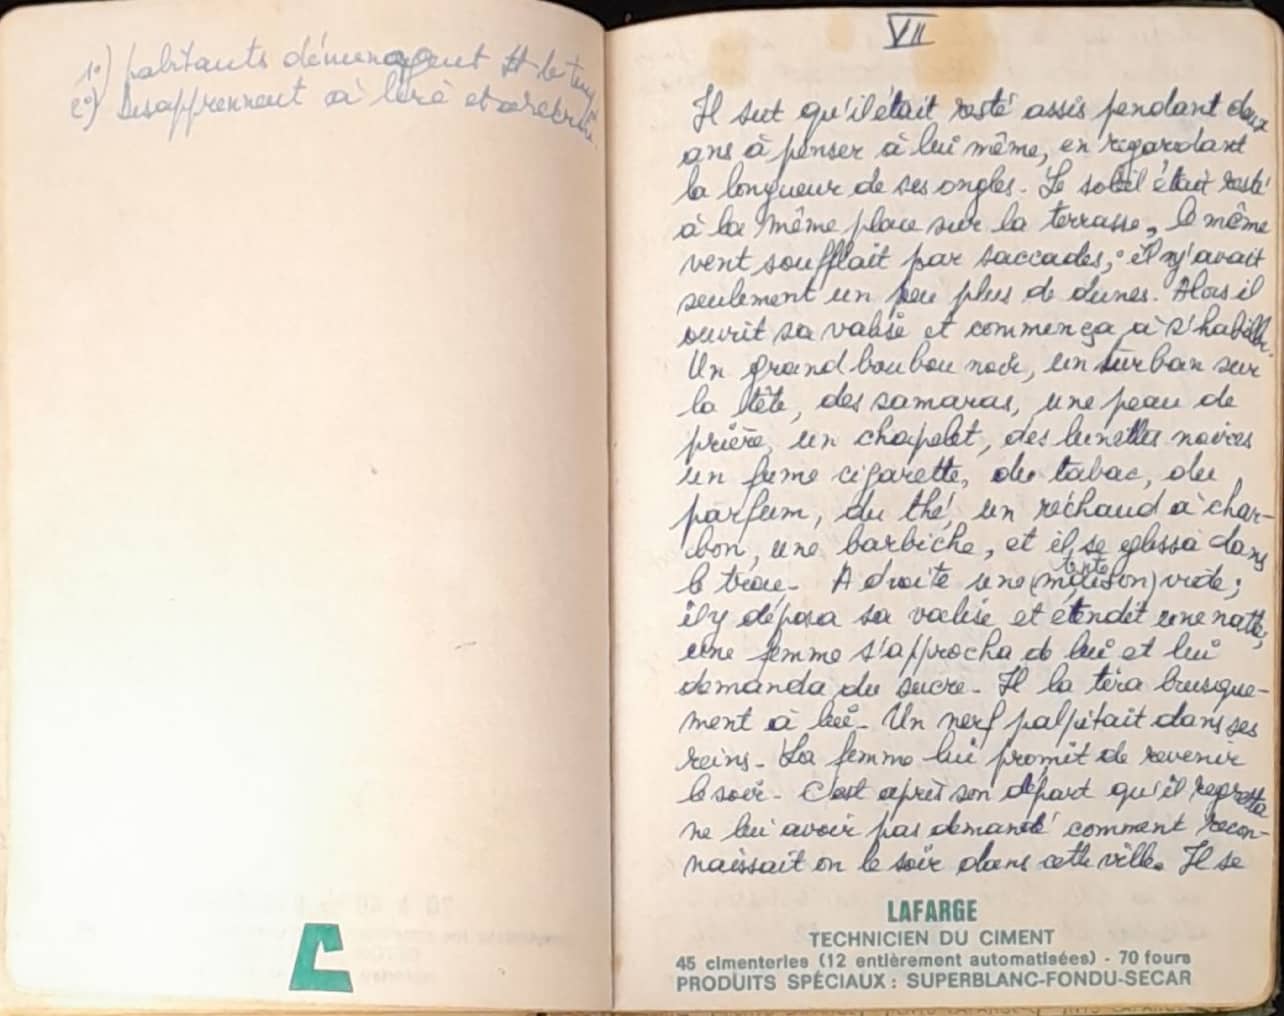 1º) habitants déménagent tt le temps
2º) Désapprennent à lire et à ecrire
VII
Il sut qu'il était resté assis pendant deux
ans à penser à lui même, en regardant
la longueur de ses ongles. Le soleil était resté
à la même place sur la terrasse, le même
vent soufflait par saccades, il n'y avait
seulement un peu plus de dunes. Alors il
ouvrit sa valise et commença à s'habiller.
Un grand boubou noir, un turban sur
la tête, des samaras, une peau de
prière, un chapelet, des lunettes noires
un fume cigarette, du tabac, du
parfum, du thé, un réchaud à char-
bon, une barbiche, et il se glissa dans
le trou. A droite une (maison) tente vide;
il y déposa sa valise et étendit une natte,
une femme s'approcha de lui et lui
demanda du sucre. Il la tira brusque-
ment à lui. Un nerf palpitait dans ses
reins. La femme lui promit de revenir
le soir. C'est après son départ qu'il regretta
ne lui avoir pas demandé comment recon-
naissait on le soir dans cette ville. Il se
LAFARGE
TECHNICIEN DU CIMENT
45 cimenteries (12 entièrement automatisées) - 70 fours
PRODUITS SPÉCIAUX : SUPERBLANC-FONDU-SECAR